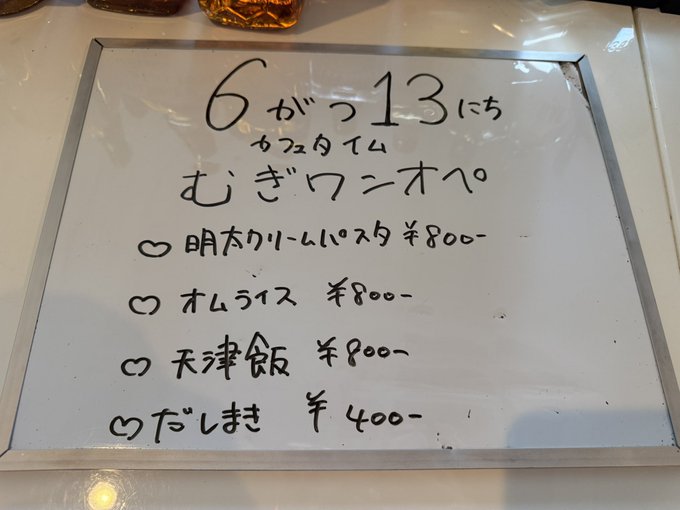 6がつ13にち
カフェタイム
むぎワンオペ
♡ 明太クリームパスタ ¥800-
♡ オムライス ¥800-
♡ 天津飯 ¥800-
♡ だしまき ¥400-